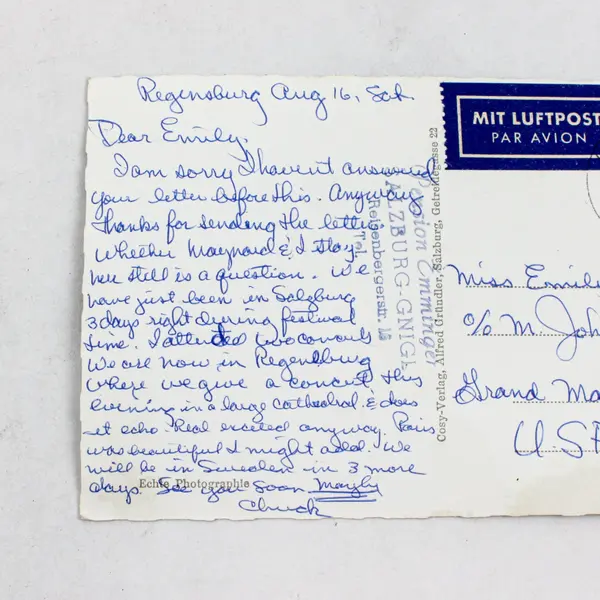 Regensburg Aug 16, Sat.
Dear Emily,
I am sorry I haven't answered
your letter before this. Anyway
thanks for sending the letter
Whether Maynard & I stay
here still is a question. We
have just been in Salzburg
3 days right during festival
time. I attended two concerts
We are now in Regensburg
where we give a concert this
evening in a large cathedral. & does
it echo Real excited anyway Paris
was beautiful I might add. We
will be in Sweden in 3 more
days. See you soon Maybe
Chuck
Echte Photographie
Pension Emminger
SALZBURG-GNIGL
Reisenbergerstr. 15
Tel.
Cosy-Verlag, Alfred Gründler, Salzburg, Getreidegasse 22
MIT LUFTPOST
PAR AVION
Miss Emily
c/o M. Joh
Grand Ma
USA